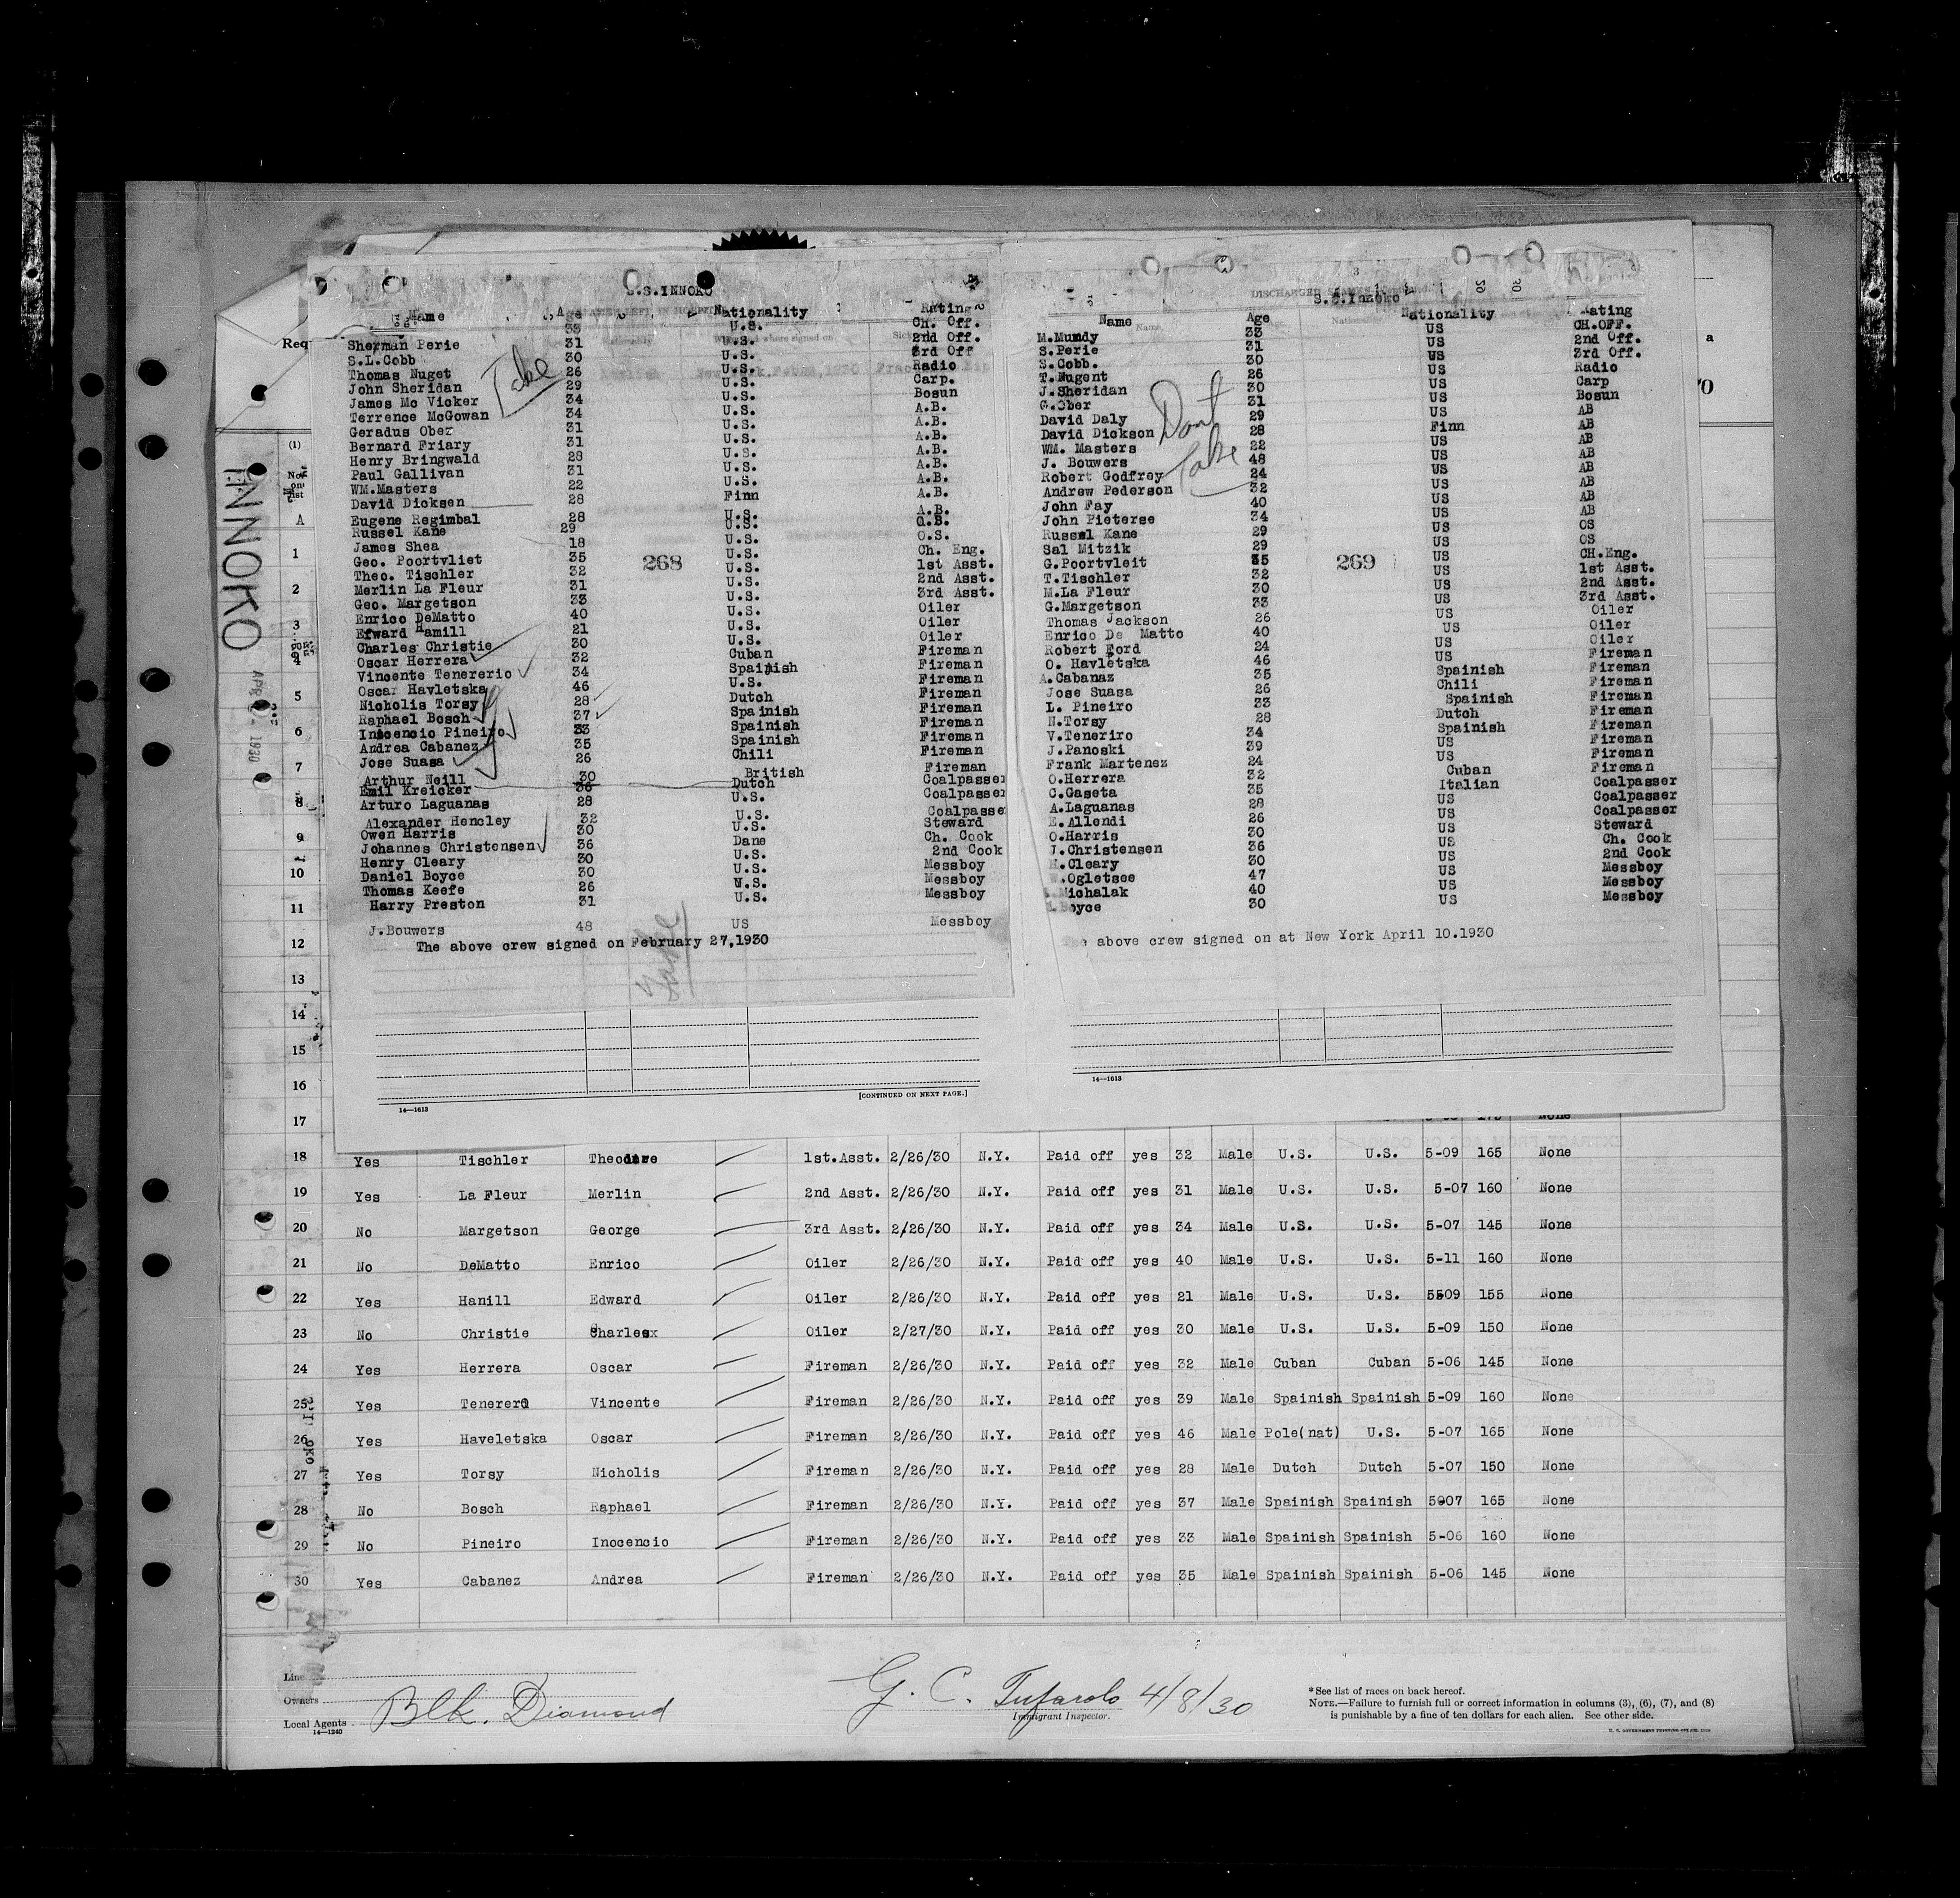 S.S.INNOKO
Name Age Nationality Rating
33 U.S. CH. Off.
Sherman Perie 31 U.S. 2nd Off.
S.L.Cobb 30 U.S. 3rd Off
Thomas Nuget 26 U.S. Radio
John Sheridan 29 U.S. Carp.
James Mc Vicker 34 U.S. Bosun
Terrence McGowan 34 U.S. A.B.
Geradus Ober 31 U.S. A.B.
Bernard Friary 31 U.S. A.B.
Henry Bringwald 28 U.S. A.B.
Paul Gallivan 31 U.S. A.B.
WM.Masters 22 U.S. A.B.
David Dicksen 28 Finn A.B.
Eugene Regimbal 28 U.S. A.B.
Russel Kane 29 U.S. O.S.
James Shea 18 U.S. O.S.
Geo. Poortvliet 35 U.S. Ch. Eng.
Theo. Tischler 32 U.S. 1st Asst.
Merlin La Fleur 31 U.S. 2nd Asst.
Geo. Margetson 33 U.S. 3rd Asst.
Enrico DeMatto 40 U.S. Oiler
Efward Hamill 21 U.S. Oiler
Charles Christie 30 U.S. Oiler
Oscar Herrera 32 Cuban Fireman
Vincente Tenererio 34 Spainish Fireman
Oscar Havletska 46 U.S. Fireman
Nicholis Torsy 28 Dutch Fireman
Raphael Bosch 37 Spainish Fireman
Inocencio Pineiro 33 Spainish Fireman
Andrea Cabanez 35 Spainish Fireman
Jose Suasa 26 Chili Fireman
Arthur Neill 30 British Fireman
Emil Kreicker 36 Dutch Coalpasser
Arturo Laguanas 28 U.S. Coalpasser
Alexander Hencley 32 U.S. Coalpasse
Owen Harris 30 U.S. Steward
Johannes Christensen 36 Dane Ch. Cook
Henry Cleary 30 U.S. 2nd Cook
Daniel Boyce 30 U.S. Messboy
Thomas Keefe 26 U.S. Messboy
Harry Preston 31 U.S. Messboy
J.Bouwers 48 US Messboy
The above crew signed on February 27,1930
Take
268
Take
14—1613
[CONTINUED ON NEXT PAGE.]
S.S.Innoko
Name Age Nationality Rating
M.Mundy 33 US CH.OFF.
S.Perie 31 US 2nd Off.
S.Cobb. 30 US 3rd Off.
T.Nugent 26 US Radio
J.Sheridan 30 US Carp
G.Ober 31 US Bosun
David Daly 29 US AB
David Dickson 28 Finn AB
WM. Masters 22 US AB
J. Bouwers 48 US AB
Robert Godfrey 24 US AB
Andrew Pederson 32 US AB
John Fay 40 US AB
John Pieterse 34 US AB
Russel Kane 29 US OS
Sal Mitzik 29 US OS
G.Poortvleit 35 US CH.Eng.
T.Tischler 32 US 1st Asst.
M.La Fleur 30 US 2nd Asst.
G.Margetson 33 US 3rd Asst.
Thomas Jackson 26 US Oiler
Enrico De Matto 40 US Oiler
Robert Ford 24 US Oiler
O. Havletska 46 US Fireman
A.Cabanaz 35 Spainish Fireman
Jose Suasa 26 Chili Fireman
L. Pineiro 33 Spainish Fireman
N.Torsy 28 Dutch Fireman
V.Teneriro 34 Spainish Fireman
J.Panoski 39 US Fireman
Frank Martenez 24 US Fireman
O.Herrera 32 Cuban Fireman
C.Gaseta 35 Italian Coalpasser
A.Laguanas 28 US Coalpasser
E.Allendi 26 US Coalpasser
O.Harris 30 US Steward
J.Christensen 36 US Ch. Cook
H.Cleary 30 US 2nd Cook
.Ogletsee 47 US Messboy
.Michalak 40 US Messboy
.Boyce 30 US Messboy
above crew signed on at New York April 10.1930
Dont
Take
269
14—1613
INNOKO
Req
a
(1)
A
1
2
3
4
5
6
7
8
9
10
11
12
13
14
15
16
17
18 Yes Tischler Theodore 1st.Asst. 2/26/30 N.Y. Paid off yes 32 Male U.S. U.S. 5-09 165 None
19 Yes La Fleur Merlin 2nd Asst. 2/26/30 N.Y. Paid off yes 31 Male U.S. U.S. 5-07 160 None
20 No Margetson George 3rd Asst. 2/26/30 N.Y. Paid off yes 34 Male U.S. U.S. 5-07 145 None
21 No DeMatto Enrico Oiler 2/26/30 N.Y. Paid off yes 40 Male U.S. U.S. 5-11 160 None
22 Yes Hanill Edward Oiler 2/26/30 N.Y. Paid off yes 21 Male U.S. U.S. 5509 155 None
23 No Christie Charlesx Oiler 2/27/30 N.Y. Paid off yes 30 Male U.S. U.S. 5-09 150 None
24 Yes Herrera Oscar Fireman 2/26/30 N.Y. Paid off yes 32 Male Cuban Cuban 5-06 145 None
25 Yes Tenerero Vincente Fireman 2/26/30 N.Y. Paid off yes 39 Male Spainish Spainish 5-09 160 None
26 Yes Haveletska Oscar Fireman 2/26/30 N.Y. Paid off yes 46 Male Pole(nat) U.S. 5-07 165 None
27 Yes Torsy Nicholis Fireman 2/26/30 N.Y. Paid off yes 28 Male Dutch Dutch 5-07 150 None
28 No Bosch Raphael Fireman 2/26/30 N.Y. Paid off yes 37 Male Spainish Spainish 5007 165 None
29 No Pineiro Inocencio Fireman 2/26/30 N.Y. Paid off yes 33 Male Spainish Spainish 5-06 160 None
30 Yes Cabanez Andrea Fireman 2/26/30 N.Y. Paid off yes 35 Male Spainish Spainish 5-06 145 None
Line
Owners
Local Agents Blk. Diamond
14—1240
G. C. Tufarolo 4/8/30
Immigrant Inspector.
*See list of races on back hereof.
NOTE.—Failure to furnish full or correct information in columns (3), (6), (7), and (8)
is punishable by a fine of ten dollars for each alien. See other side.